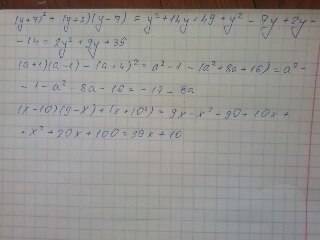 (y+7)² + (y+2)(y-7) = y²+14y+49+y²-7y+2y-
-14 = 2y²+9y+35
(a+1)(a-1) - (a+4)² = a²-1-(a²+8a+16) = a²-
-1-a²-8a-16 = -17-8a
(x-10)(9-x)+(x+10)² = 9x-x²-90+10x+
+x²+20x+100 = 39x+10